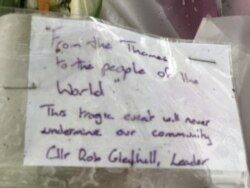 "
From the Thames
to the people of the
World"
This tragic event will never
undermine our community
Cllr Rob Gledhill, Leader